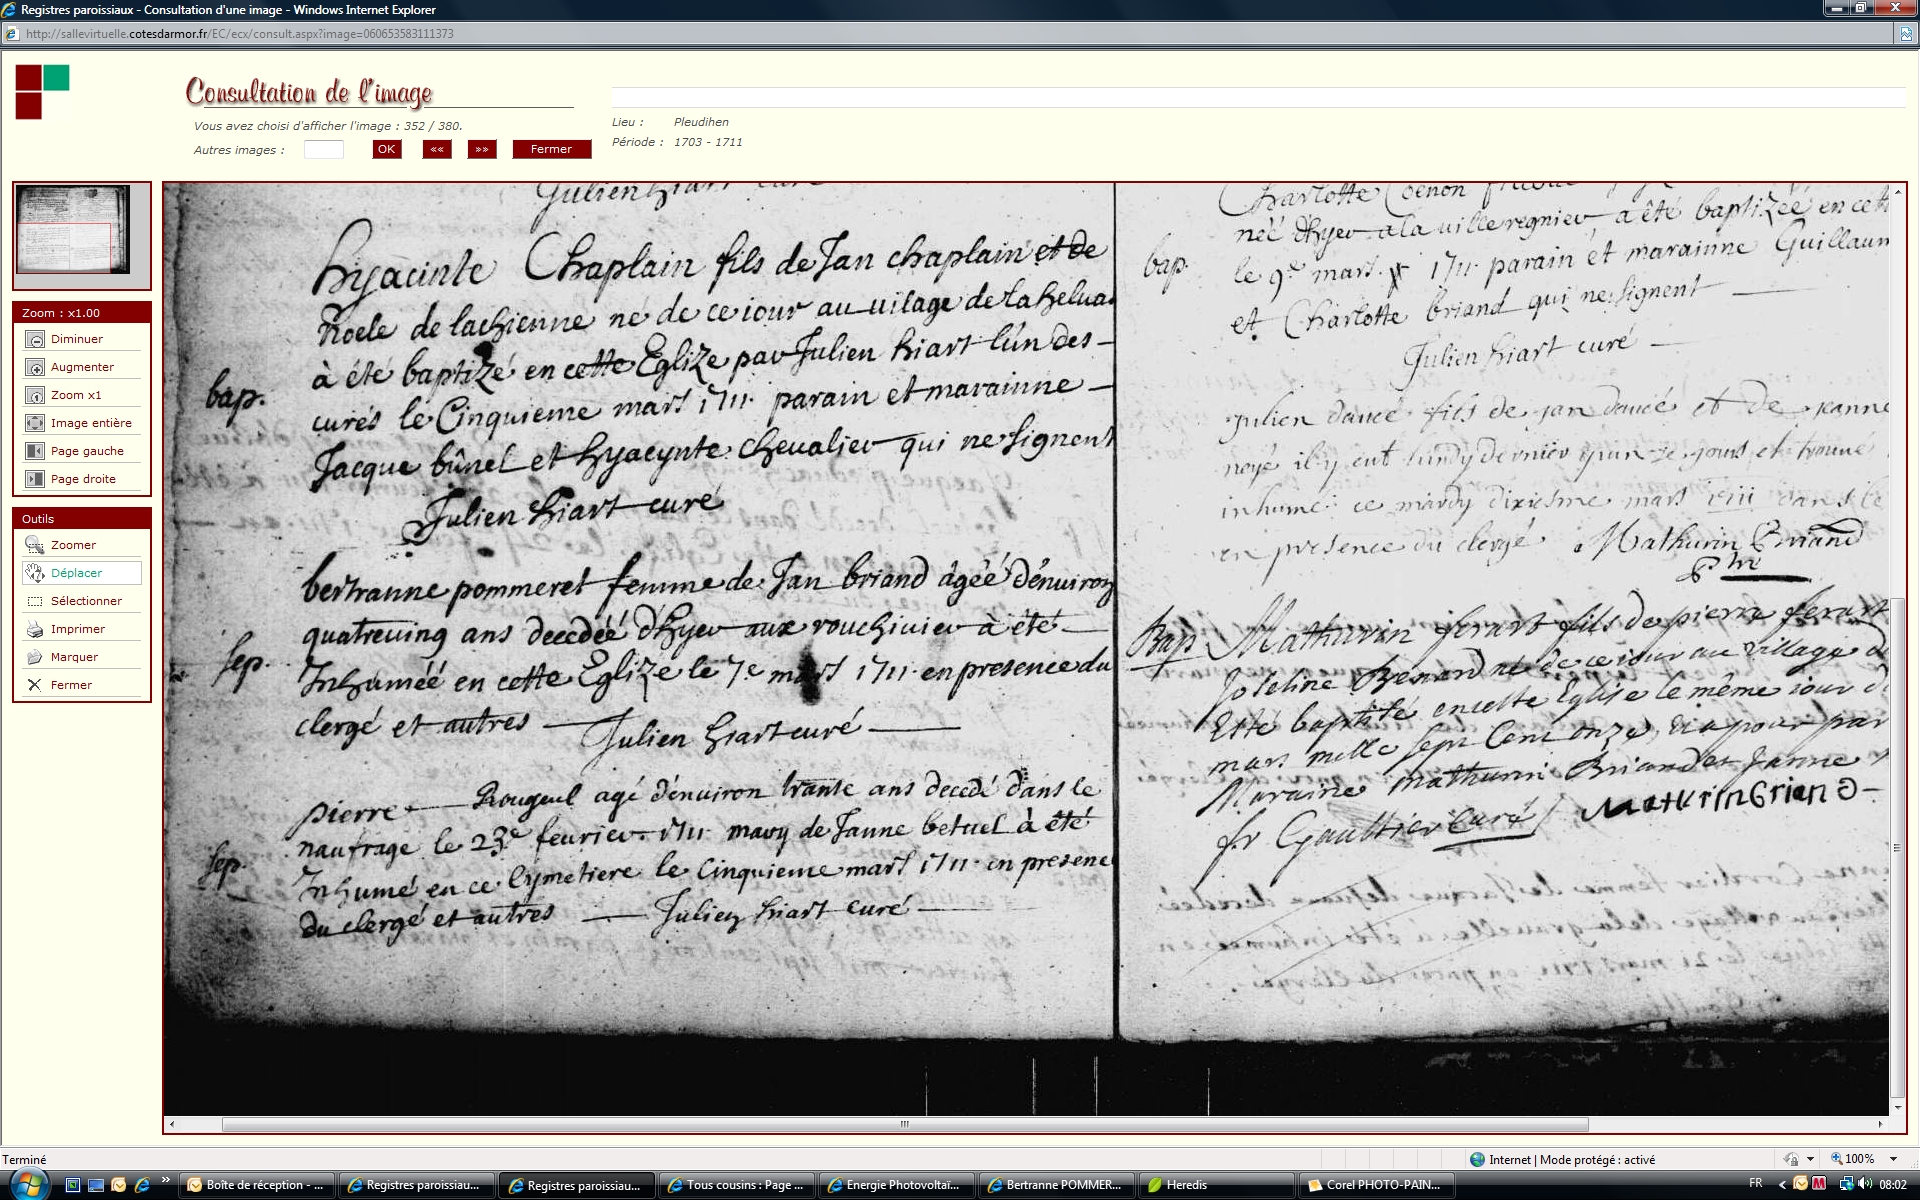 Registres paroissiaux - Consultation d'une image - Windows Internet Explorer
http://sallevirtuelle.cotesdarmor.fr/EC/ecx/consult.aspx?image=060653583111373
Consultation de l'image
Vous avez choisi d'afficher l'image : 352 / 380.
Autres images :
OK
««
»»
Fermer
Lieu : Pleudihen
Période : 1703 - 1711
Zoom : x1.00
Diminuer
Augmenter
Zoom x1
Image entière
Page gauche
Page droite
Outils
Zoomer
Déplacer
Sélectionner
Imprimer
Marquer
Fermer
Julien hiart curé
hyacinte Chaplain fils de Jan chaplain et de
Roele de lachienne né de ce iour au uilage de la helua
à été baptizé en cette Eglize par Julien hiart l'un des
bap.
curés le Cinquieme mars 1711 parain et marainne
Jacque bûnel et hyacynte chevalier qui ne signent
Julien hiart curé
bertranne pommeret femme de Jan briand âgéé d'enuiron
quatreuing ans decedéé d'hyer aux rouchiuier à été
sep.
Inhuméé en cette Eglize le 7e mars 1711 en presence du
clergé et autres Julien hiart curé
pierre Rougeul agé d'enuiron trante ans decedé dans le
naufrage le 23e feurier 1711 mary de Janne betuel à été
sep.
Inhumé en ce Cymetiere le Cinquieme mars 1711 en presence
du clergé et autres Julien hiart curé
Charlotte
néé d'hyer a la uille regnier a été baptizéé en cett
bap.
le 9e mars 1711 parain et marainne Guillaum
et Charlotte briand qui ne signent
Julien hiart curé
Julien daucé fils de jan daucé et de jeanne
noyé il y eut lundy dernier jours et trouué
inhumé ce mardy dixiesme mars 1711 dans le
en presence du clergé Mathurin Briand
Ptre
Bap Mathurin ferart fils de pierre ferart
Joseline Besnard né de ce iour au village d
Eté baptisé en cette Eglise le même iour d
mars mille sept Cent onze, Et a pour par
Maraine mathurin Briand et Janne
fr Gaultier Curé Maturin Briand
Terminé
Internet | Mode protégé : activé
100%
Boîte de réception - ...
Registres paroissiau...
Registres paroissiau...
Tous cousins : Page ...
Energie Photovoltaï...
Bertranne POMMER...
Heredis
Corel PHOTO-PAIN...
FR
08:02